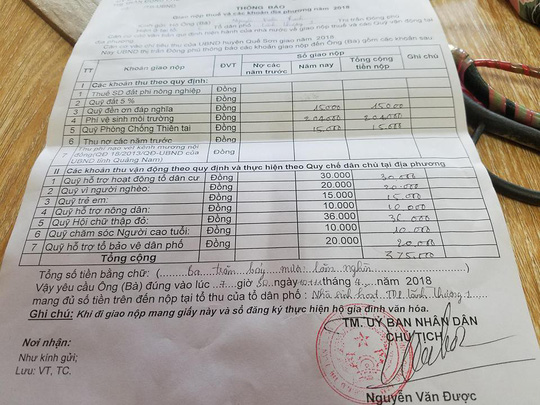 THÔNG BÁO
Giao nộp thuế và các khoản địa phương năm 2018
Căn cứ vào chỉ tiêu thu của UBND huyện Quế Sơn giao năm 2018
Nay UBND thị trấn Đông phú thông báo các khoản giao nộp đến Ông (Bà) gồm các khoản sau:
TT Khoản giao nộp ĐVT Số giao nộp Ghi chú
Nợ các năm trước Năm nay Tổng cộng tiền nộp
I Các khoản thu theo quy định:
1 Thuế SD đất phi nông nghiệp Đồng
2 Quỹ đất 5 % Đồng
3 Quỹ đền ơn đáp nghĩa Đồng 15.000 15.000
4 Phí vệ sinh môi trường Đồng 204.000 204.000
5 Quỹ Phòng Chống Thiên tai Đồng 15.000 15.000
6 Thu nợ các năm trước Đồng
7 Thu phí nạo vét kênh mương nội đồng(QĐ 18/2013/QĐ-UBND của UBND tỉnh Quảng Nam) Đồng
II Các khoản thu vận động theo quy định và thực hiện theo Quy chế dân chủ tại địa phương
1 Quỹ hỗ trợ hoạt động tổ dân cư Đồng 30.000 30.000
2 Quỹ vì người nghèo: Đồng 20.000 20.000
3 Quỹ trẻ em: Đồng 15.000 15.000
4 Quỹ hỗ trợ nông dân: Đồng 10.000 10.000
5 Quỹ Hội chữ thập đỏ: Đồng 36.000 36.000
6 Quỹ chăm sóc Người cao tuổi: Đồng 10.000 10.000
7 Quỹ hỗ trợ tổ bảo vệ dân phố Đồng 20.000 20.000
Tổng cộng 375.000
Tổng số tiền bằng chữ: (Ba trăm bảy mươi lăm nghìn)
Vậy yêu cầu Ông (Bà) đúng vào lúc 7 giờ 30 ngày năm 2018
mang đủ số tiền trên đến nộp tại tổ thu của tổ dân phố : Nhà sinh hoạt
Ghi chú: Khi đi giao nộp mang giấy này và sổ đăng ký thực hiện hộ gia đình văn hóa.
TM. UỶ BAN NHÂN DÂN
CHỦ TỊCH
Nơi nhận:
Như kính gửi;
Lưu: VT, TC.
Nguyễn Văn Được